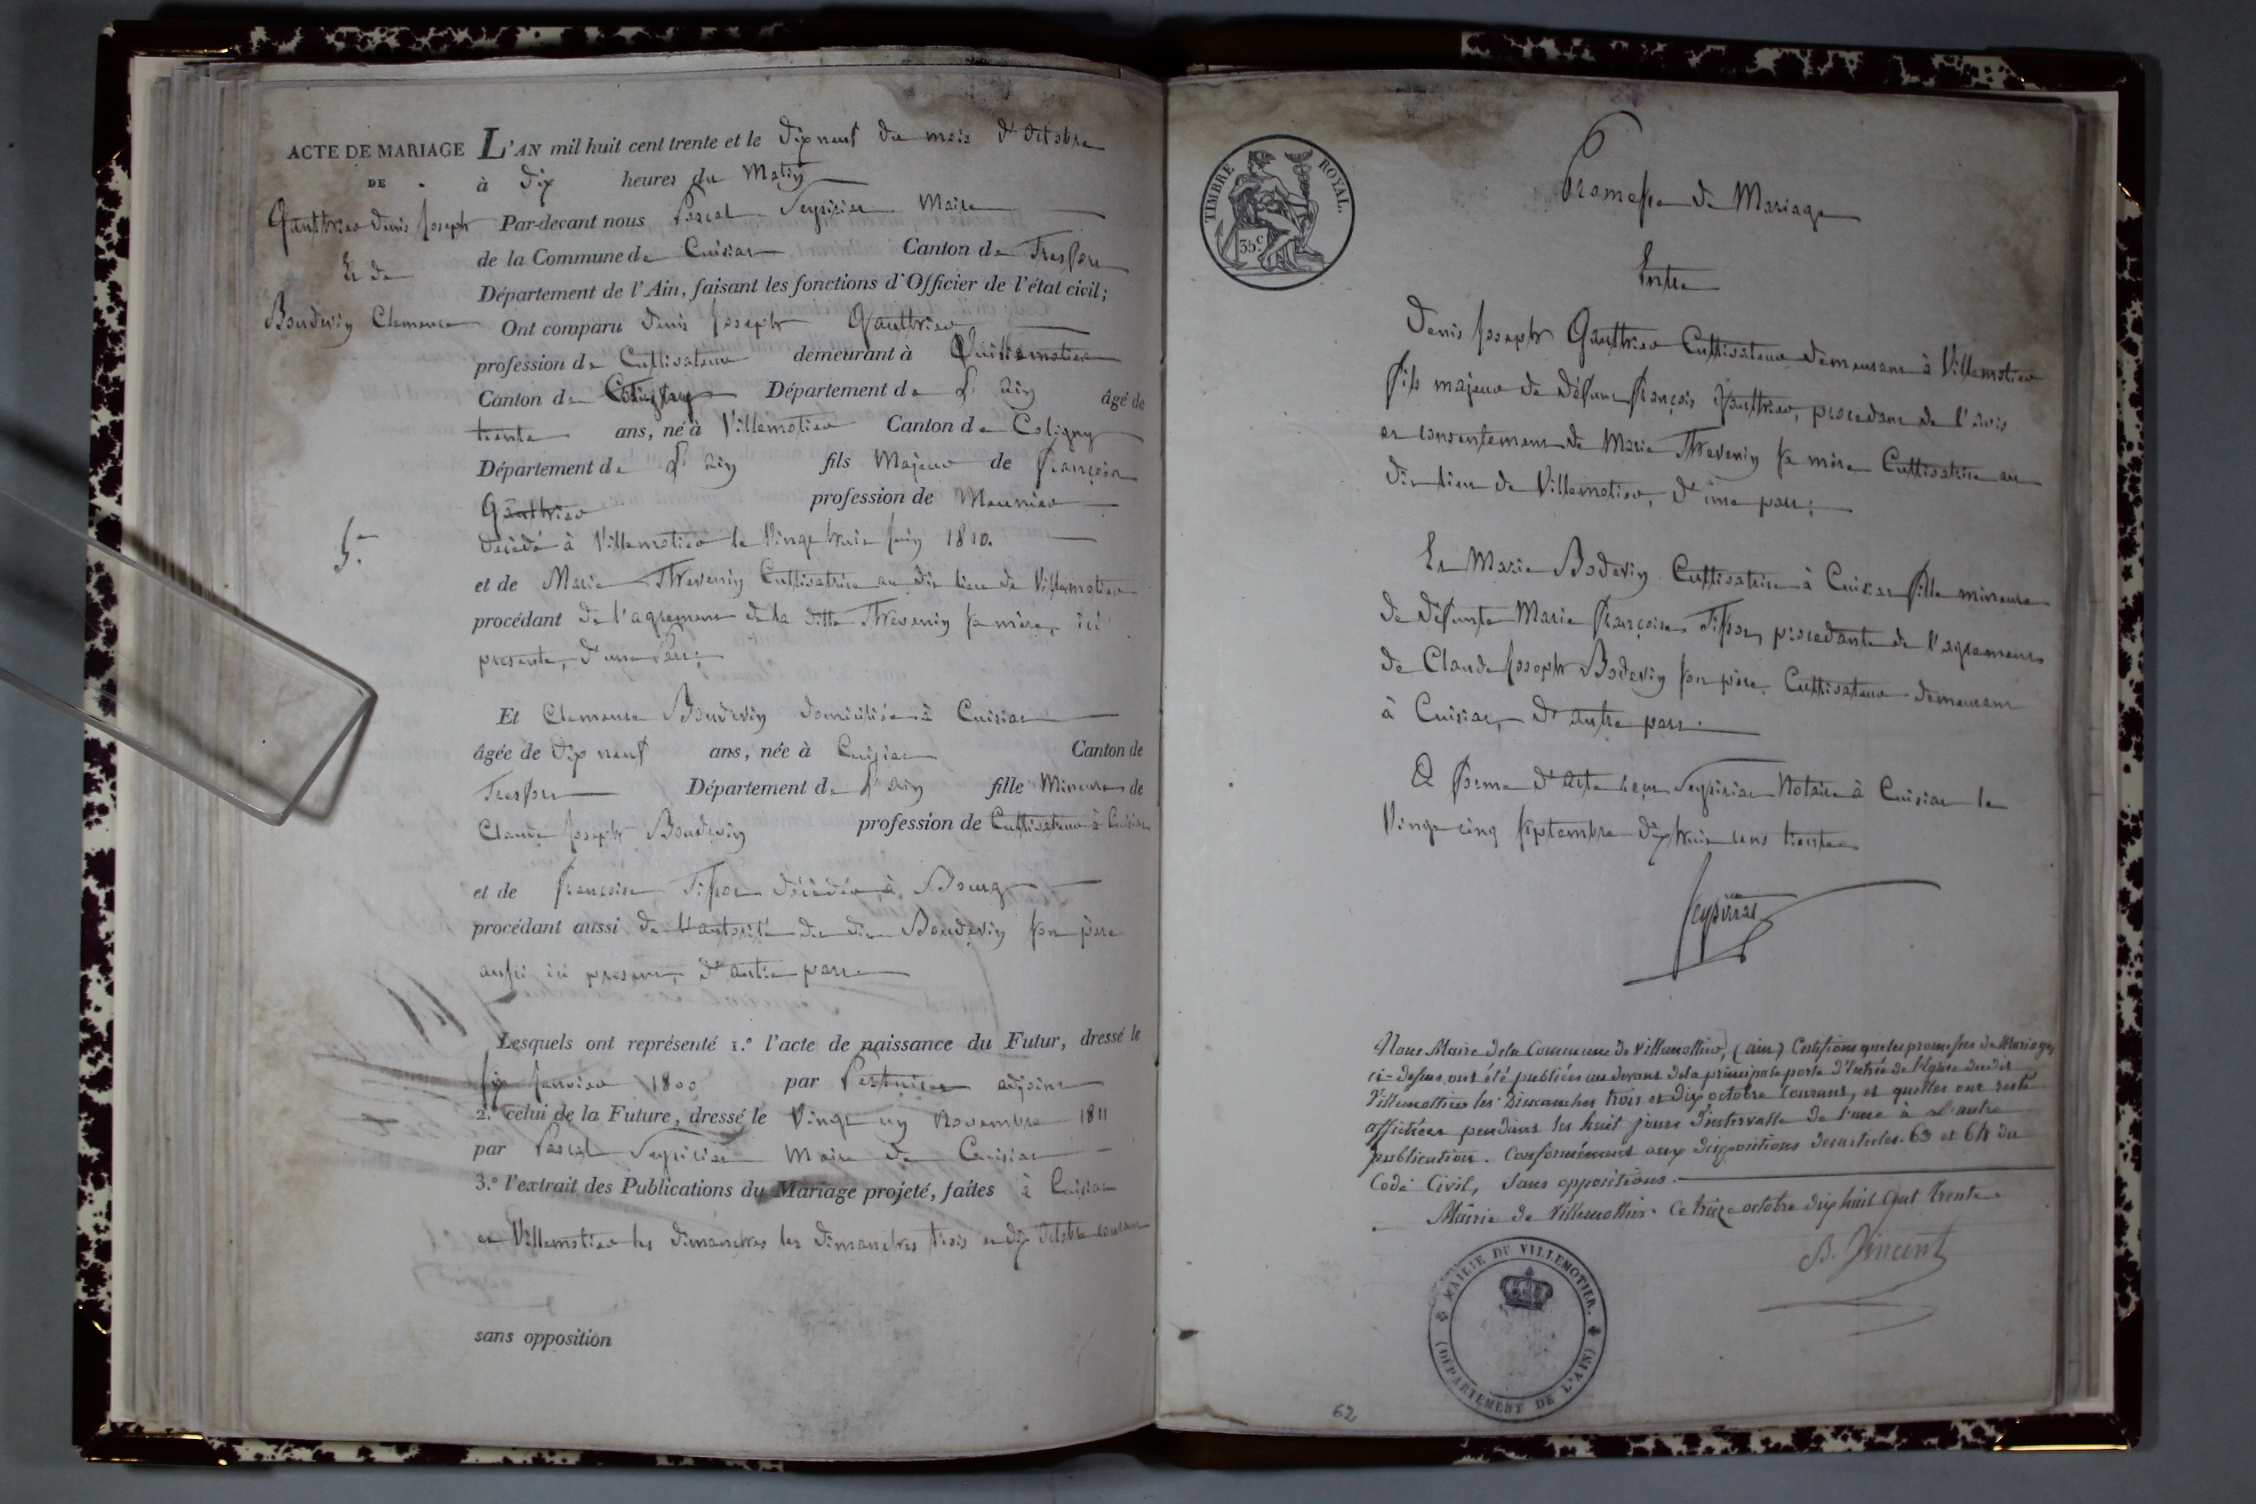 ACTE DE MARIAGE
DE
Gauthier denis Joseph
Et de
Boudevin Clemence
5.e
L'AN mil huit cent trente et le dix neuf du mois d'octobre
à dix heures du Matin
Par-devant nous Pascal Seyssias Maire
de la Commune de Cuisiat Canton de Treffort
Département de l'Ain, faisant les fonctions d'Officier de l'état civil;
Ont comparu denis Joseph Gauthier
profession de Cultivateur demeurant à Villemotier
Canton de Coligny Département de L'ain âgé de
trente ans, né à Villemotier Canton de Coligny
Département de L'ain fils Majeur de françois
Gauthier profession de Meunier
décédé à Villemotier le Vingt huit Juin 1810.
et de Marie Thevenin Cultivatrice au dit lieu de Villemotier
procédant de l'agrement de la ditte Thevenin sa mère, ici
presente, d'une Part;
Et Clemence Boudevin domiciliée à Cuisiat
âgée de dix neuf ans, née à Cuisiat Canton de
Treffort Département de L'ain fille Mineure de
Claude Joseph Boudevin profession de Cultivateur à Cuisiat
et de françoise décédée à Bourg
procédant aussi de L'autorité du dit Boudevin son père
aussi ici present, d'autre part
Lesquels ont représenté 1.° l'acte de naissance du Futur, dressé le
six Janvier 1800 par adjoint
2.° celui de la Future, dressé le Vingt un Novembre 1811
par Pascal Maire de Cuisiat
3.° l'extrait des Publications du Mariage projeté, faites à Cuisiat
et Villemotier les dimanches les dimanches trois et dix Octobre courant
sans opposition
TIMBRE ROYAL.
35c
Promesse de Mariage
Entre
Denis Joseph Gauthier Cultivateur demeurant à Villemotier
fils majeur de défunt françois Gauthier, procedant de l'avis
et consentement de Marie Thevenin sa mère Cultivatrice au
dit lieu de Villemotier, d'une part;
Et Marie Bodevin Cultivatrice à Cuisiat fille mineure
de défunte Marie françoise procedante de l'agrement
de Claude Joseph Bodevin son père, Cultivateur demeurant
à Cuisiat, d'autre part.
A forme d'acte reçu Notaire à Cuisiat le
Vingt cinq septembre dix huit cent trente
Nous Maire de la Commune de Villemottier, (ain) Certifions que les promesses de Mariage
ci-dessus ont été publiées au devant de la principale porte d'Entrée de l'Eglise dudit
Villemottier les Dimanches trois et dix octobre courant, et quelles ont resté
affichées pendant les huit jours d'intervalle de l'une à l'autre
publication. Conformément aux dispositions des articles 63 et 64 du
Code Civil, Sans oppositions.
Mairie de Villemottier. Ce treize octobre dix huit Cent trente
B. Vincent
MAIRIE DU VILLEMOTIER.
(DÉPARTEMENT DE L'AIN)
62